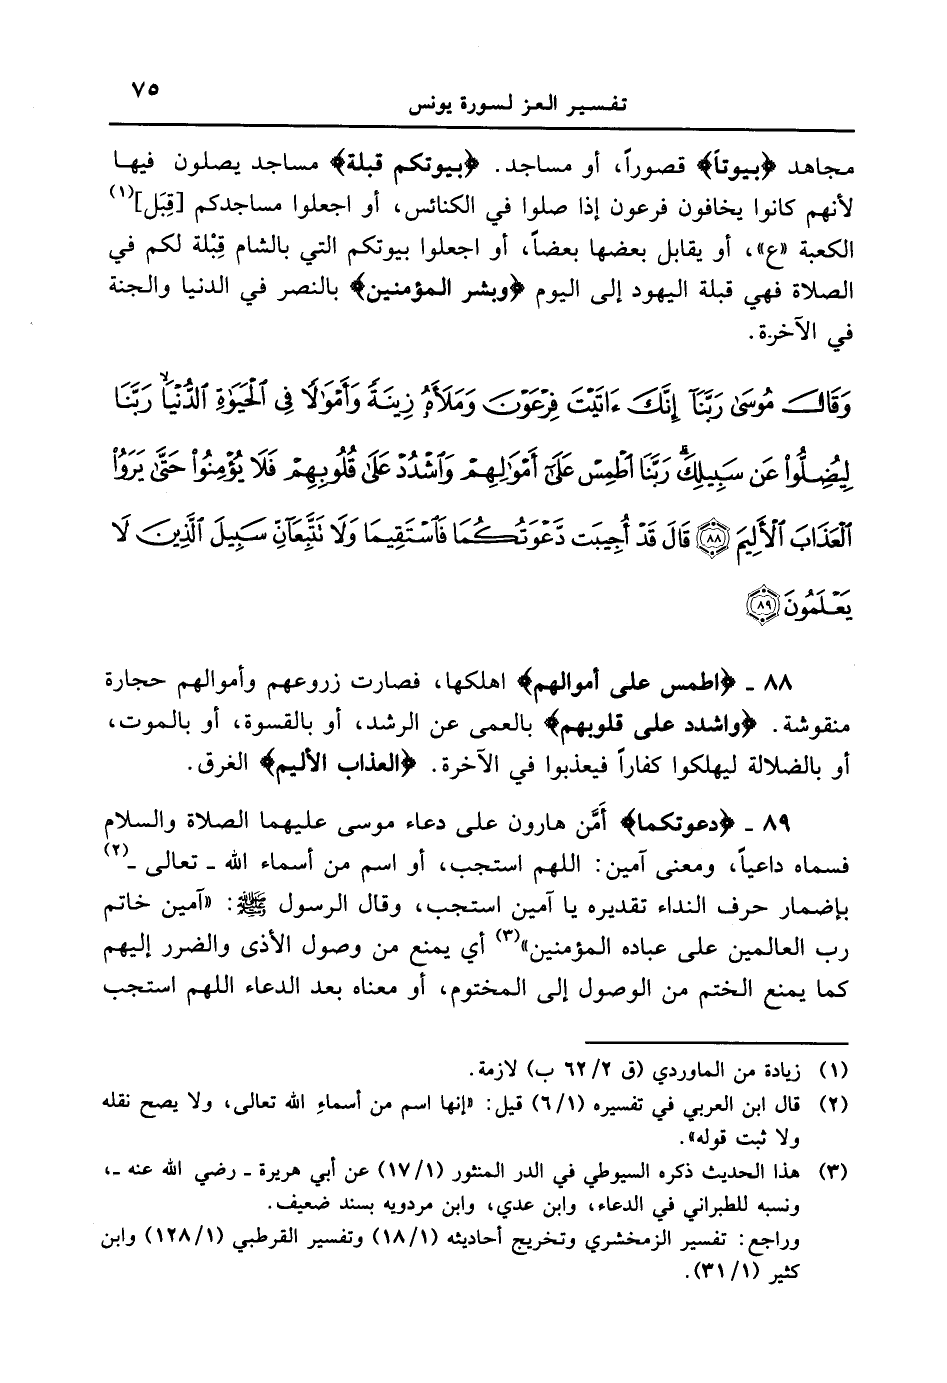 تفسير العز لسورة يونس
٧٥
مجاهد ﴿بيوتاً﴾ قصوراً، أو مساجد. ﴿بيوتكم قبلة﴾ مساجد يصلون فيها
لأنهم كانوا يخافون فرعون إذا صلوا في الكنائس، أو اجعلوا مساجدكم [قِبَل](١)
الكعبة «ع»، أو يقابل بعضها بعضاً، أو اجعلوا بيوتكم التي بالشام قِبْلة لكم في
الصلاة فهي قبلة اليهود إلى اليوم ﴿وبشر المؤمنين﴾ بالنصر في الدنيا والجنة
في الآخرة.
وَقَالَ مُوسَىٰ رَبَّنَآ إِنَّكَ ءَاتَيْتَ فِرْعَوْنَ وَمَلَأَهُۥ زِينَةً وَأَمْوَٰلًا فِى ٱلْحَيَوٰةِ ٱلدُّنْيَاۙ رَبَّنَا
لِيُضِلُّوا۟ عَن سَبِيلِكَۖ رَبَّنَا ٱطْمِسْ عَلَىٰٓ أَمْوَٰلِهِمْ وَٱشْدُدْ عَلَىٰ قُلُوبِهِمْ فَلَا يُؤْمِنُوا۟ حَتَّىٰ يَرَوُا۟
ٱلْعَذَابَ ٱلْأَلِيمَ ﴿٨٨﴾ قَالَ قَدْ أُجِيبَت دَّعْوَتُكُمَا فَٱسْتَقِيمَا وَلَا تَتَّبِعَآنِّ سَبِيلَ ٱلَّذِينَ لَا
يَعْلَمُونَ ﴿٨٩﴾
٨٨ ـ ﴿اطمس على أموالهم﴾ اهلكها، فصارت زروعهم وأموالهم حجارة
منقوشة. ﴿واشدد على قلوبهم﴾ بالعمى عن الرشد، أو بالقسوة، أو بالموت،
أو بالضلالة ليهلكوا كفاراً فيعذبوا في الآخرة. ﴿العذاب الأليم﴾ الغرق.
٨٩ ـ ﴿دعوتكما﴾ أَمَّن هارون على دعاء موسى عليهما الصلاة والسلام
فسماه داعياً، ومعنى آمين: اللهم استجب، أو اسم من أسماء الله ـ تعالى ـ(٢)
بإضمار حرف النداء تقديره يا آمين استجب، وقال الرسول ﷺ: «آمين خاتم
رب العالمين على عباده المؤمنين»(٣) أي يمنع من وصول الأذى والضرر إليهم
كما يمنع الختم من الوصول إلى المختوم، أو معناه بعد الدعاء اللهم استجب
(١) زيادة من الماوردي (ق ٦٢/٢ ب) لازمة.
(٢) قال ابن العربي في تفسيره (٦/١) قيل: «إنها اسم من أسماءِ الله تعالى، ولا يصح نقله
ولا ثبت قوله».
(٣) هذا الحديث ذكره السيوطي في الدر المنثور (١٧/١) عن أبي هريرة ـ رضي الله عنه ـ،
ونسبه للطبراني في الدعاء، وابن عدي، وابن مردويه بسند ضعيف.
وراجع: تفسير الزمخشري وتخريج أحاديثه (١٨/١) وتفسير القرطبي (١٢٨/١) وابن
كثير (٣١/١).